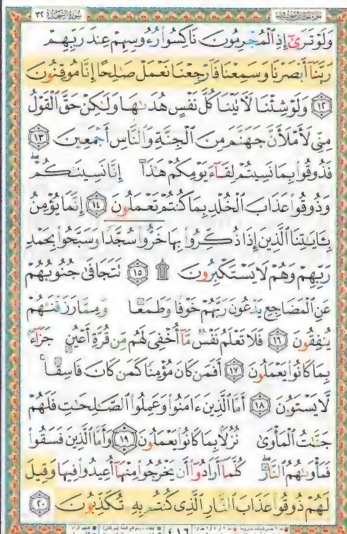 وَلَوْ تَرَىٰٓ إِذِ ٱلْمُجْرِمُونَ نَاكِسُوا۟ رُءُوسِهِمْ عِندَ رَبِّهِمْ
رَبَّنَآ أَبْصَرْنَا وَسَمِعْنَا فَٱرْجِعْنَا نَعْمَلْ صَٰلِحًا إِنَّا مُوقِنُونَ
١٢ وَلَوْ شِئْنَا لَءَاتَيْنَا كُلَّ نَفْسٍ هُدَىٰهَا وَلَٰكِنْ حَقَّ ٱلْقَوْلُ
مِنِّى لَأَمْلَأَنَّ جَهَنَّمَ مِنَ ٱلْجِنَّةِ وَٱلنَّاسِ أَجْمَعِينَ ١٣
فَذُوقُوا۟ بِمَا نَسِيتُمْ لِقَآءَ يَوْمِكُمْ هَٰذَآ إِنَّا نَسِينَٰكُمْ ۖ
وَذُوقُوا۟ عَذَابَ ٱلْخُلْدِ بِمَا كُنتُمْ تَعْمَلُونَ ١٤ إِنَّمَا يُؤْمِنُ
بِـَٔايَٰتِنَا ٱلَّذِينَ إِذَا ذُكِّرُوا۟ بِهَا خَرُّوا۟ سُجَّدًا وَسَبَّحُوا۟ بِحَمْدِ
رَبِّهِمْ وَهُمْ لَا يَسْتَكْبِرُونَ ۩ ١٥ تَتَجَافَىٰ جُنُوبُهُمْ
عَنِ ٱلْمَضَاجِعِ يَدْعُونَ رَبَّهُمْ خَوْفًا وَطَمَعًا وَمِمَّا رَزَقْنَٰهُمْ
يُنفِقُونَ ١٦ فَلَا تَعْلَمُ نَفْسٌ مَّآ أُخْفِىَ لَهُم مِّن قُرَّةِ أَعْيُنٍ جَزَآءًۢ
بِمَا كَانُوا۟ يَعْمَلُونَ ١٧ أَفَمَن كَانَ مُؤْمِنًا كَمَن كَانَ فَاسِقًا ۚ
لَّا يَسْتَوُۥنَ ١٨ أَمَّا ٱلَّذِينَ ءَامَنُوا۟ وَعَمِلُوا۟ ٱلصَّٰلِحَٰتِ فَلَهُمْ
جَنَّٰتُ ٱلْمَأْوَىٰ نُزُلًۢا بِمَا كَانُوا۟ يَعْمَلُونَ ١٩ وَأَمَّا ٱلَّذِينَ فَسَقُوا۟
فَمَأْوَىٰهُمُ ٱلنَّارُ ۖ كُلَّمَآ أَرَادُوٓا۟ أَن يَخْرُجُوا۟ مِنْهَآ أُعِيدُوا۟ فِيهَا وَقِيلَ
لَهُمْ ذُوقُوا۟ عَذَابَ ٱلنَّارِ ٱلَّذِى كُنتُم بِهِۦ تُكَذِّبُونَ ٢٠
٤١٦